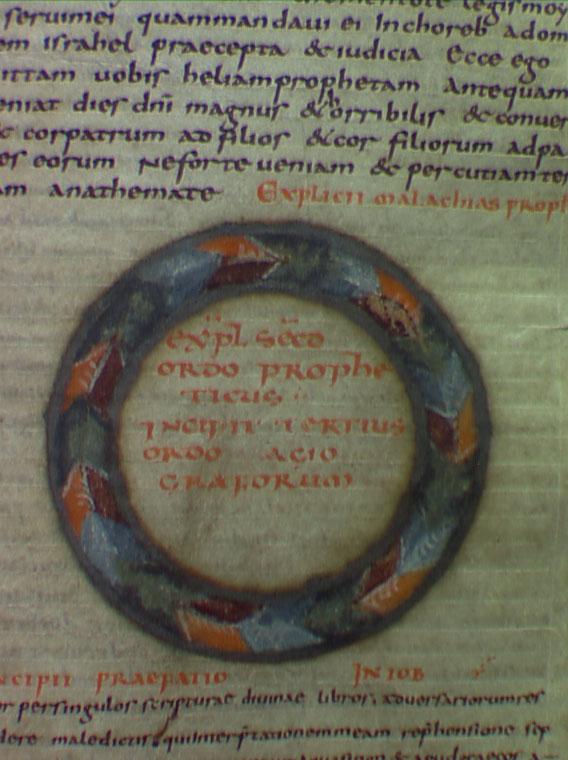 seruimei quammandaui ei Inchoreb adom
em israhel praecepta & iudicia Ecce ego
ittam uobis heliamprophetam Antequam
eniat dies dnī magnus & orribilis & conuer
& corpatrum ad filios & cor filiorum adpa
es eorum Neforte ueniam & percutiamter
am anathemate Explicit malachias proph
expl secd
ordo prophe
ticus
incipit tertius
ordo agio
graforum
ncipit praefatio In iob
or persingulos scripturae diuinae libros aduersariorumres
dere maledictis quiinterp̄tationemmeam rep̄hensione sep